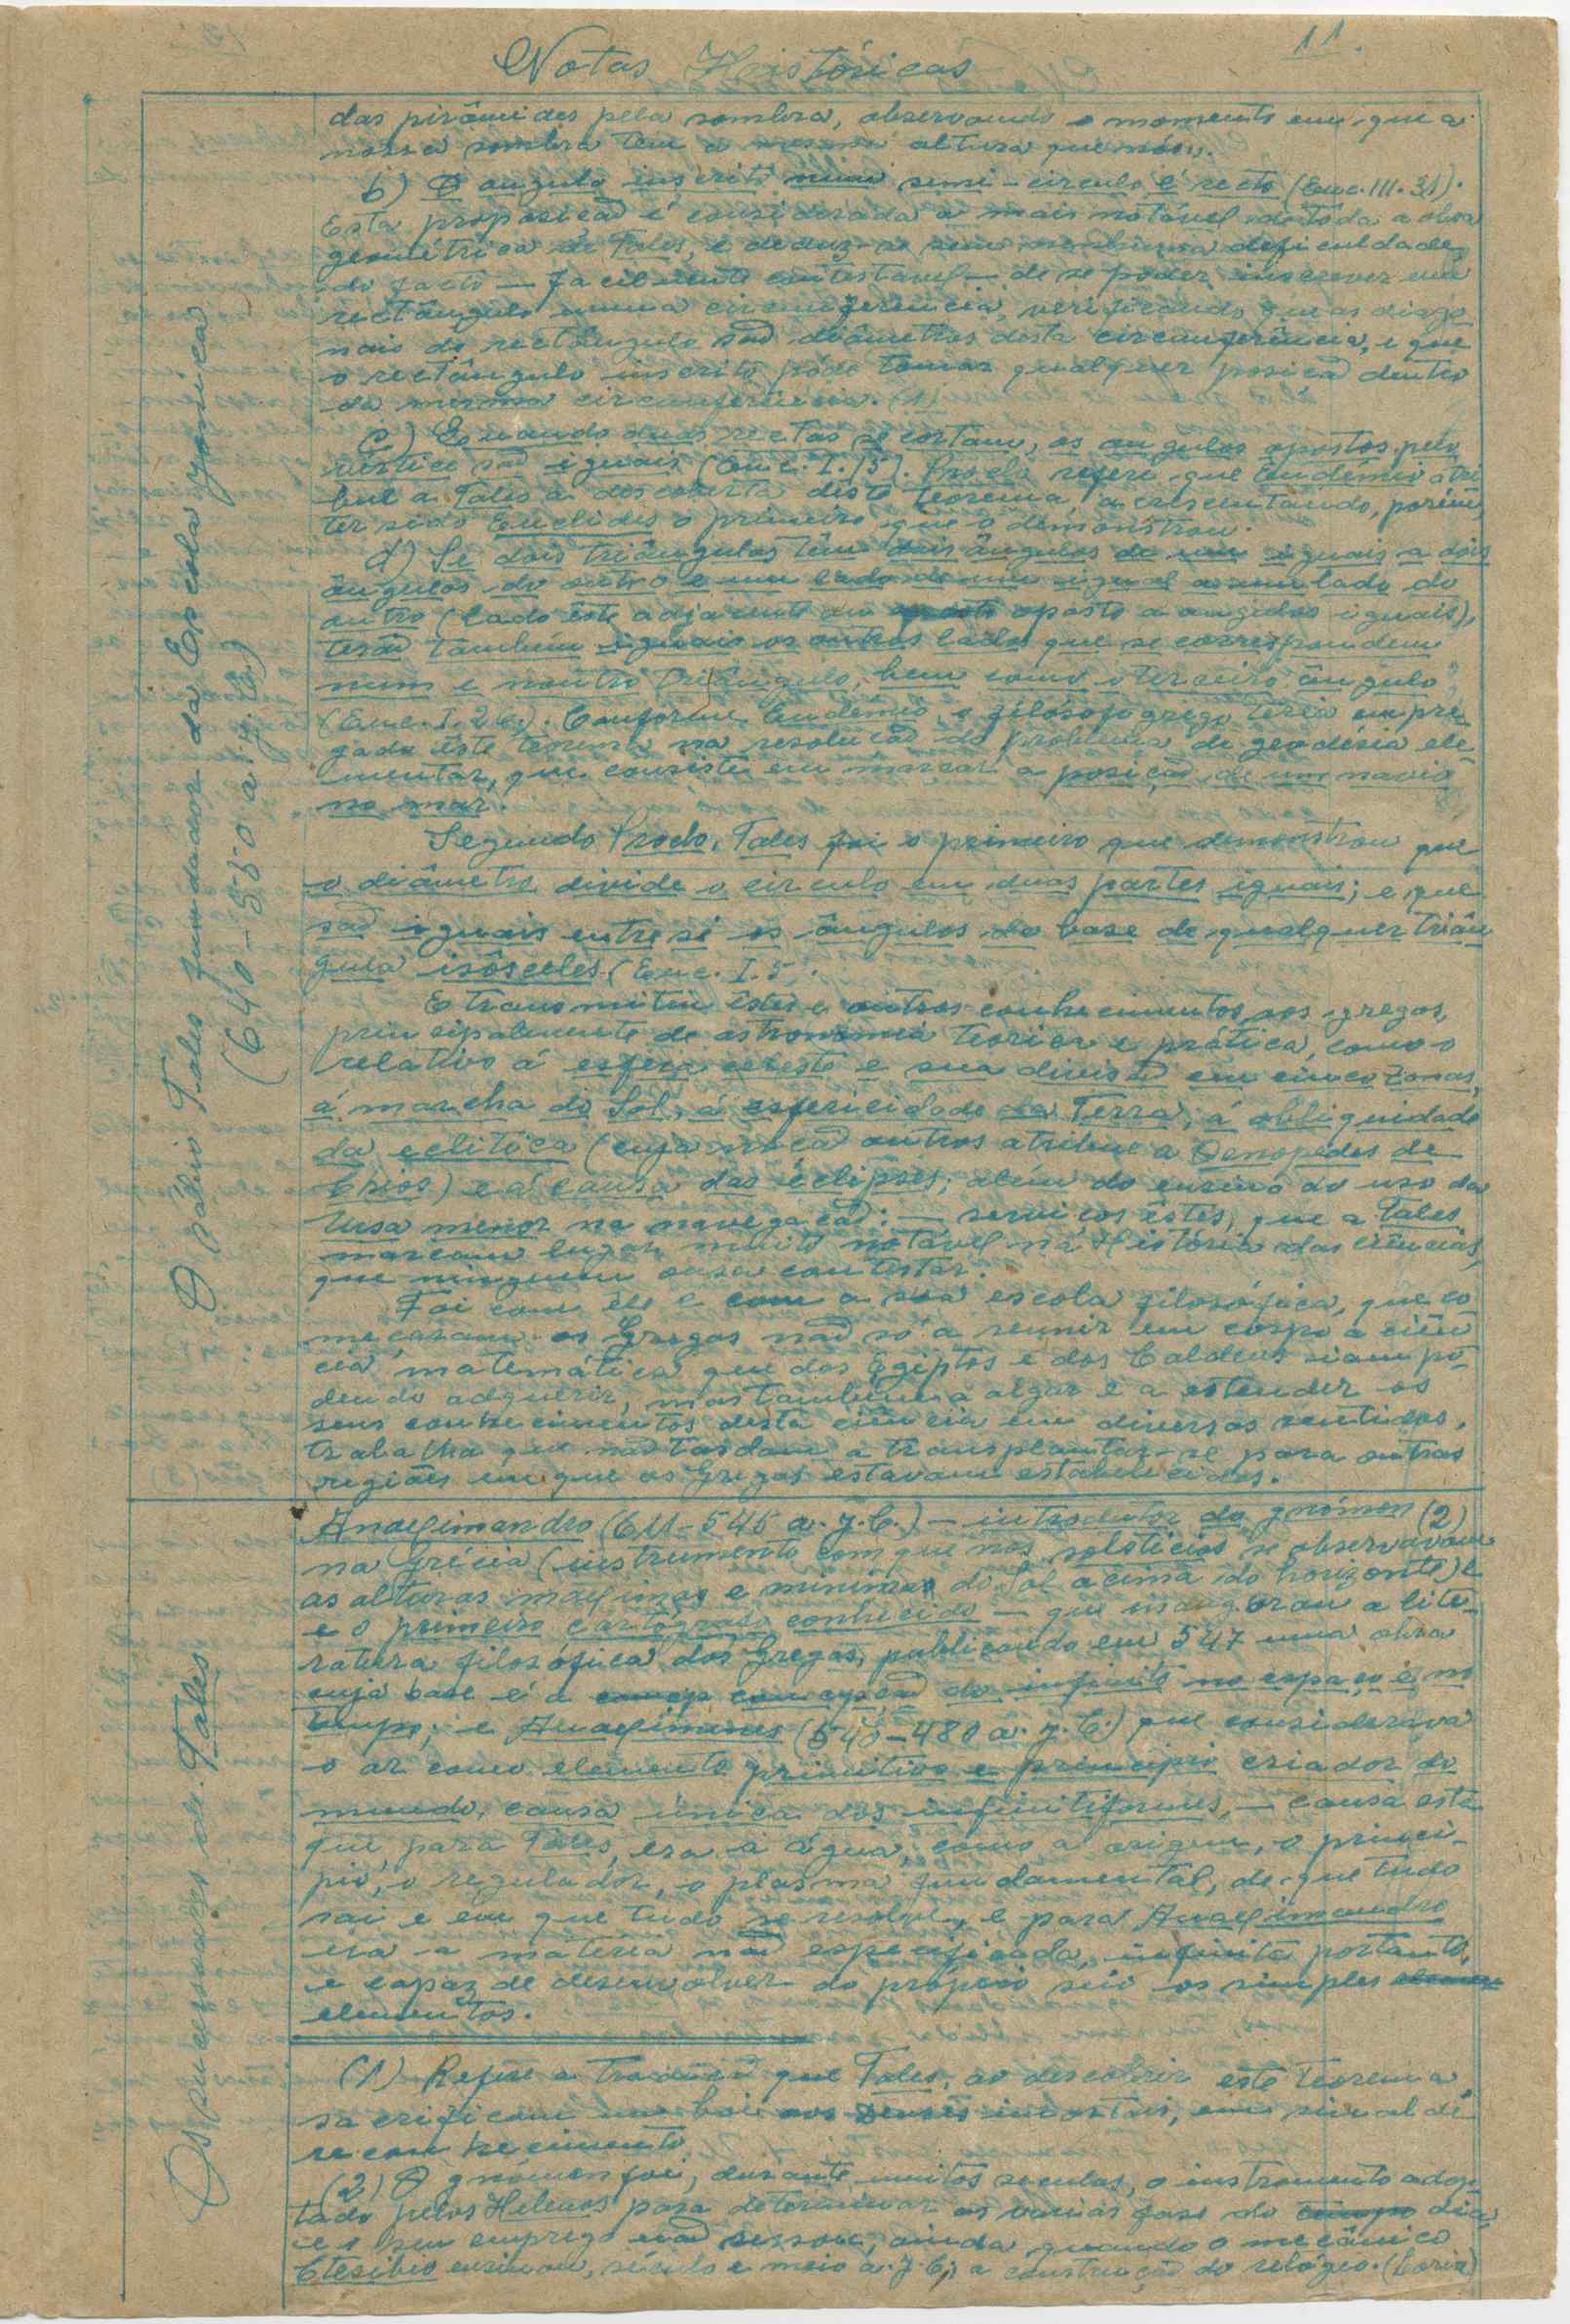 Notas Históricas
11.
O sábio Tales fundador da Escola Jónica
(640-550 a. J. C.)
das pirâmides pela sombra, observando o momento em que a
nossa sombra tem a mesma altura que nós".
b) O angulo inscrito num semi-circulo é recto (Euc. III. 31).
Esta proposicão é considerada a mais notável de tôda a obra
geométrica de Tales, e deduz-se sem nenhuma deficuldade,
do facto — facilmente contestavel — de se poder inscrever um
rectângulo numa circunferencia, verificando que as diago-
nais do rectângulo são diâmetros desta circunferência, e que
o rectângulo inscrito póde tomar qualquer posicão dentro
da mesma circunferência. (1)
c) Quando duas rectas se cortam, os angulos opostos pelo
vértice são iguais (Euc. I. 15). Proclo refere que Eudémio atri-
bue a Tales a descoberta deste teorema, acrescentando, porém,
ter sido Euclides o primeiro que o demonstrou.
d) Se dois triângulos têm dois ângulos de um iguais a dois
ângulos do outro e um lado de um igual a um lado do
outro (lado êste adjacente ou oposto a angulos iguais),
terão tambêm iguais os outros lados que se correspondem
num e noutro triângulo, bem como o terceiro ângulo"
(Euc. I. 26). Conforme Eudémio, o filósofo grego teria empre-
gado êste teorema na resolucão do problema de geodésia ele-
mentar, que consiste em marcar a posição de um navio
no mar.
Segundo Proclo, Tales foi o primeiro que demonstrou que
o diâmetro divide o circulo em duas partes iguais; e que
são iguais entre si os ângulos da base de qualquer triân
gulo isôsceles (Euc. I. 5.
E transmitiu êstes e outros conhecimentos aos gregos,
principalmente de astronomia teorica e prática, como o
relativo á esfera celeste e sua divisão em cinco zonas,
á marcha do Sol, á esfericidade da Terra, á obliquidade
da eclitica (cuja nocão outros atribue a Oenopedes de
Chios) e á causa das éclipses; além do ensino do uso da
Ursa menor na navegacão: — serviços êstes, que a Tales
marcam lugar muito notável na História das Ciências,
que ninguem ousa contestar.
Foi com êle e com a sua escola filosófica, que co
mecaram os Gregos não só a reunir em corpo a ciên
cia matemática que dos Egiptos e dos Caldeus iam po-
dendo adquerir, mas tambem a algar e a estender os
seus conhecimentos desta ciência em diversos sentidos,
trabalha que não tardam a transplantar-se para outras
regiões em que os Gregos estavam estabelecidos.
Os sucessores de Tales
Anaximandro (611-545 a. J. C.) — introdutor do gnómon (2)
na Grécia (instrumento com que nos solsticios se observavam
as alturas maximas e minimas do Sol acima do horizonte) e
e o primeiro cartógrafo conhecido — que inaugorou a lite-
ratura filosófica dos Gregos, publicando em 547 uma obra
cuja base é a concepcão do infinito no espaço e no
tempo; e Anaximenes (545-480 a. J. C.) que considerava
o ar como elemento primitivo e principio criador do
mundo, causa única dos infinitiformes, — causa esta
que, para Tales, era a água, como a origem, o princi-
pio, o regulador, o plasma fundamental, de que tudo
sai e em que tudo se resolve, e para Anaximandro
era a matéria não especificada, infinita portanto,
e capaz de desenvolver do próprio seio os simples
elementos.
(1) Refere a tradicão que Tales, ao descobrir este teorema
sacrificou um boi aos Deuses imortais, em sinal de
reconhecimento
(2) O gnómon foi, durante muitos seculos, o instromento adop-
tado pelos Helenos para determinar as varias fase do dia,
e o seu emprego não cessou, ainda quando o mecânico
Ctesibio ensinou, século e meio a. J. C., a construção do relógio. (Loria)